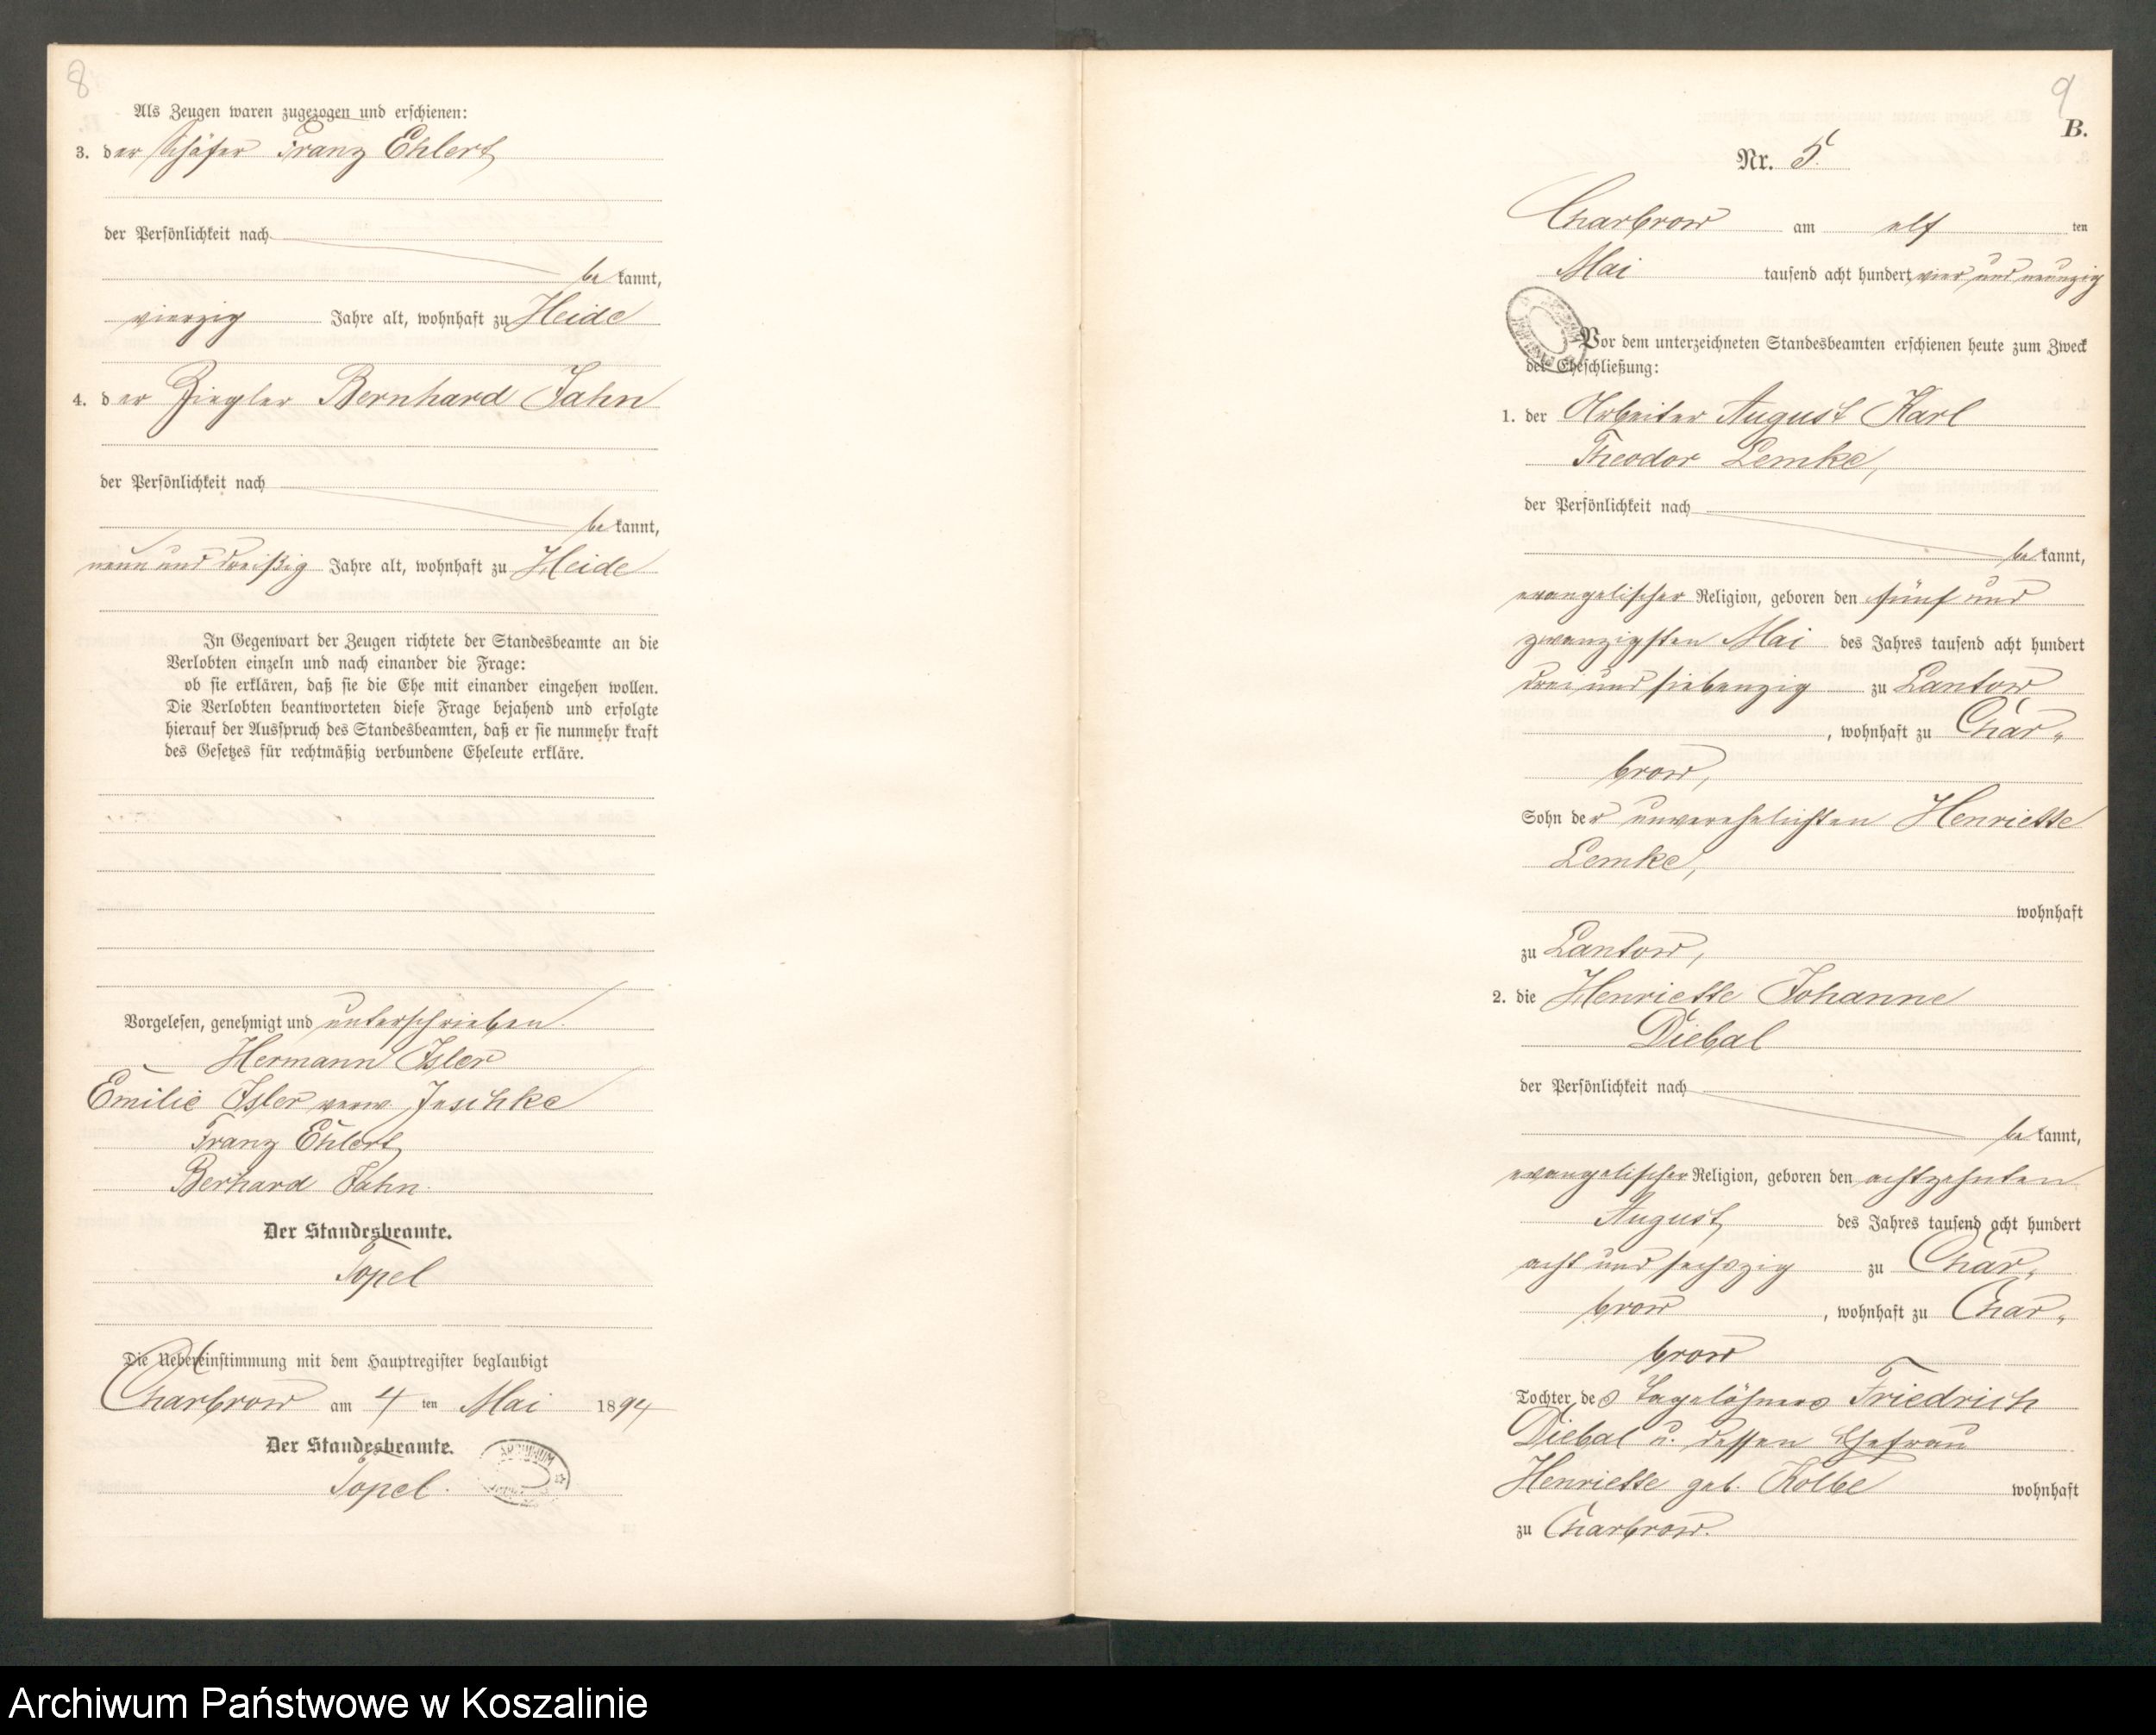 8
Als Zeugen waren zugezogen und erschienen:
3. der Schäfer Franz Ehlert
der Persönlichkeit nach
be kannt,
vierzig Jahre alt, wohnhaft zu Heide
4. der Ziegler Bernhard Jahn
der Persönlichkeit nach
be kannt,
neun und dreißig Jahre alt, wohnhaft zu Heide
In Gegenwart der Zeugen richtete der Standesbeamte an die
Verlobten einzeln und nach einander die Frage:
ob sie erklären, daß sie die Ehe mit einander eingehen wollen.
Die Verlobten beantworteten diese Frage bejahend und erfolgte
hierauf der Ausspruch des Standesbeamten, daß er sie nunmehr kraft
des Gesetzes für rechtmäßig verbundene Eheleute erkläre.
Vorgelesen, genehmigt und unterschrieben.
Hermann Isler
Emilie Isler verw. Jeschke
Franz Ehlert
Berhard Jahn.
Der Standesbeamte.
Topel
Die Uebereinstimmung mit dem Hauptregister beglaubigt
Charbrow am 4 ten Mai 1894
Der Standesbeamte.
Topel.
ARCHIWUM
9
B.
Nr. 5.
Charbrow am elf ten
Mai tausend acht hundert vier und neunzig
Vor dem unterzeichneten Standesbeamten erschienen heute zum Zweck
der Eheschließung:
1. der Arbeiter August Karl
Theodor Lemke,
der Persönlichkeit nach
be kannt,
evangelischer Religion, geboren den fünf und
zwanzigsten Mai des Jahres tausend acht hundert
drei und siebenzig zu Lantow
, wohnhaft zu Char„
brow,
Sohn der unverehelichten Henriette
Lemke,
wohnhaft
zu Lantow,
2. die Henriette Johanne
Diebal
der Persönlichkeit nach
be kannt,
evangelischer Religion, geboren den achtzehnten
August des Jahres tausend acht hundert
acht und sechszig zu Char„
brow , wohnhaft zu Char„
brow
Tochter des Tagelöhners Friedrich
Diebal u. dessen Ehefrau
Henriette geb. Kolbe wohnhaft
zu Charbrow.
Archiwum Państwowe w Koszalinie